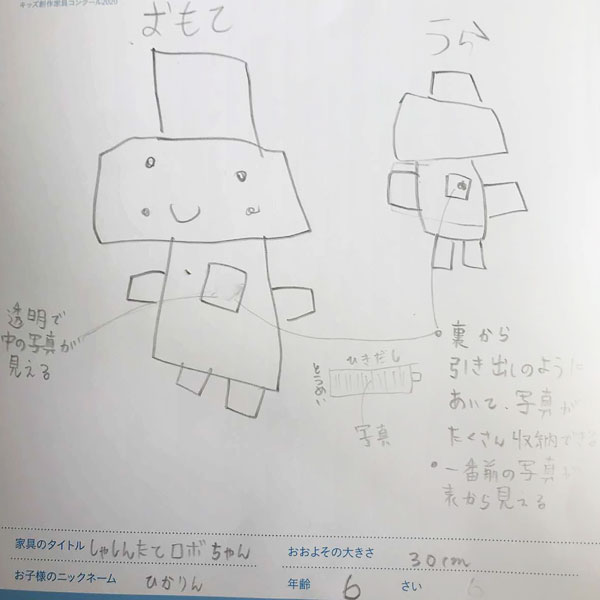 キッズ創作家具コンクール2020
おもて
うら
透明で
中の写真が
見える
ひきだし
とうめい
写真
裏から
引き出しのように
あいて、写真が
たくさん収納できる
一番前の写真が
表から見える
家具のタイトル しゃしんたてロボちゃん
おおよその大きさ 30cm
お子様のニックネーム ひかりん
年齢 6 さい 6